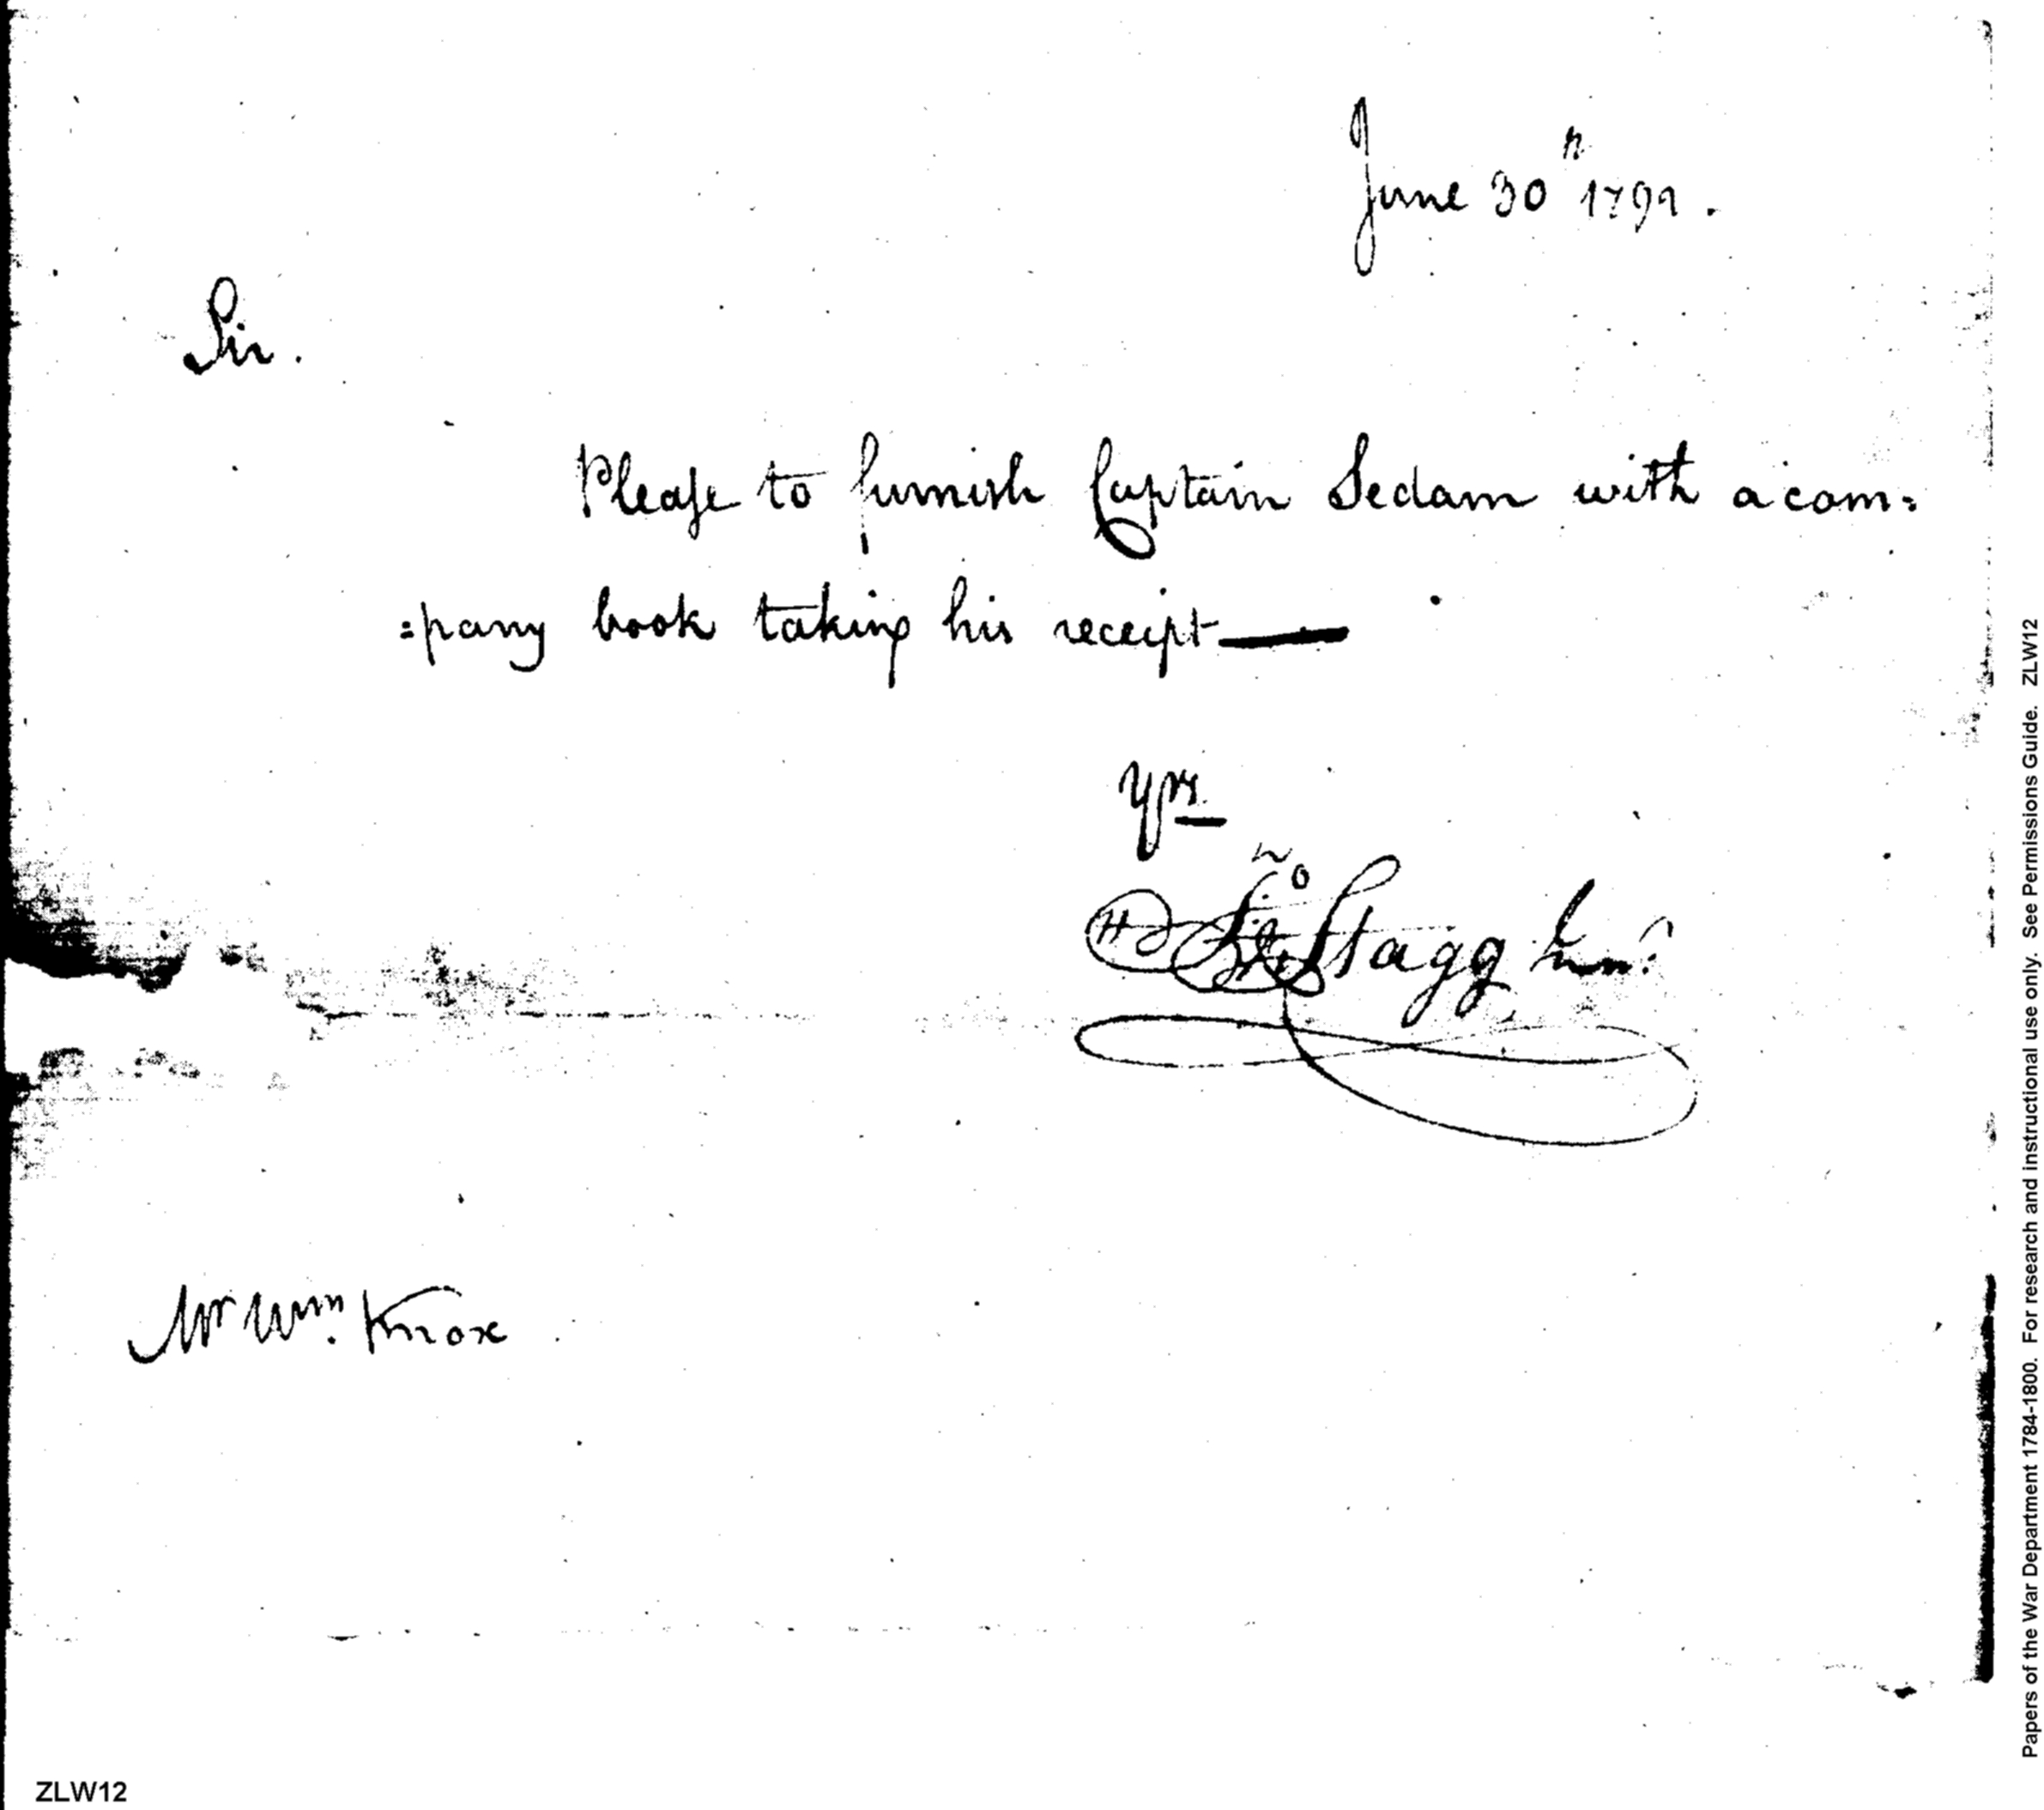 June 30th 1791.
Sir.
Please to furnish Captain Sedam with a com=
=pany book taking his receipt—
Yrs
Jno Stagg Junr
Mr Wm. Knox
ZLW12
Papers of the War Department 1784-1800. For research and instructional use only. See Permissions Guide. ZLW12